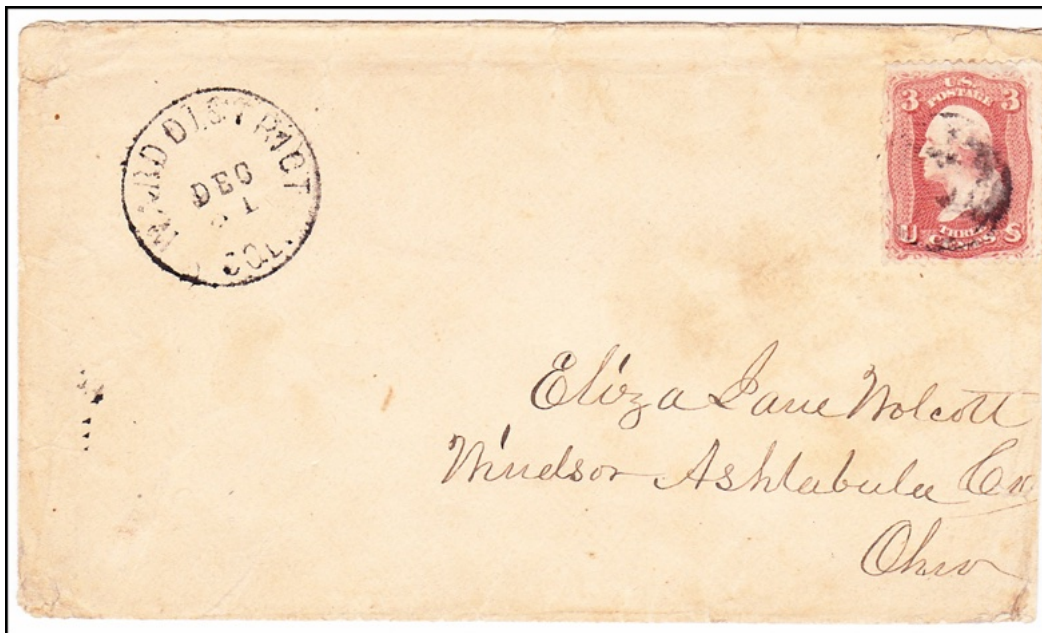 WARD DISTRICT
DEC
COL.
U.S.
POSTAGE
3 3
THREE
CENTS
U S
Eliza Jane Wolcott
Windsor Ashtabula Co
Ohio